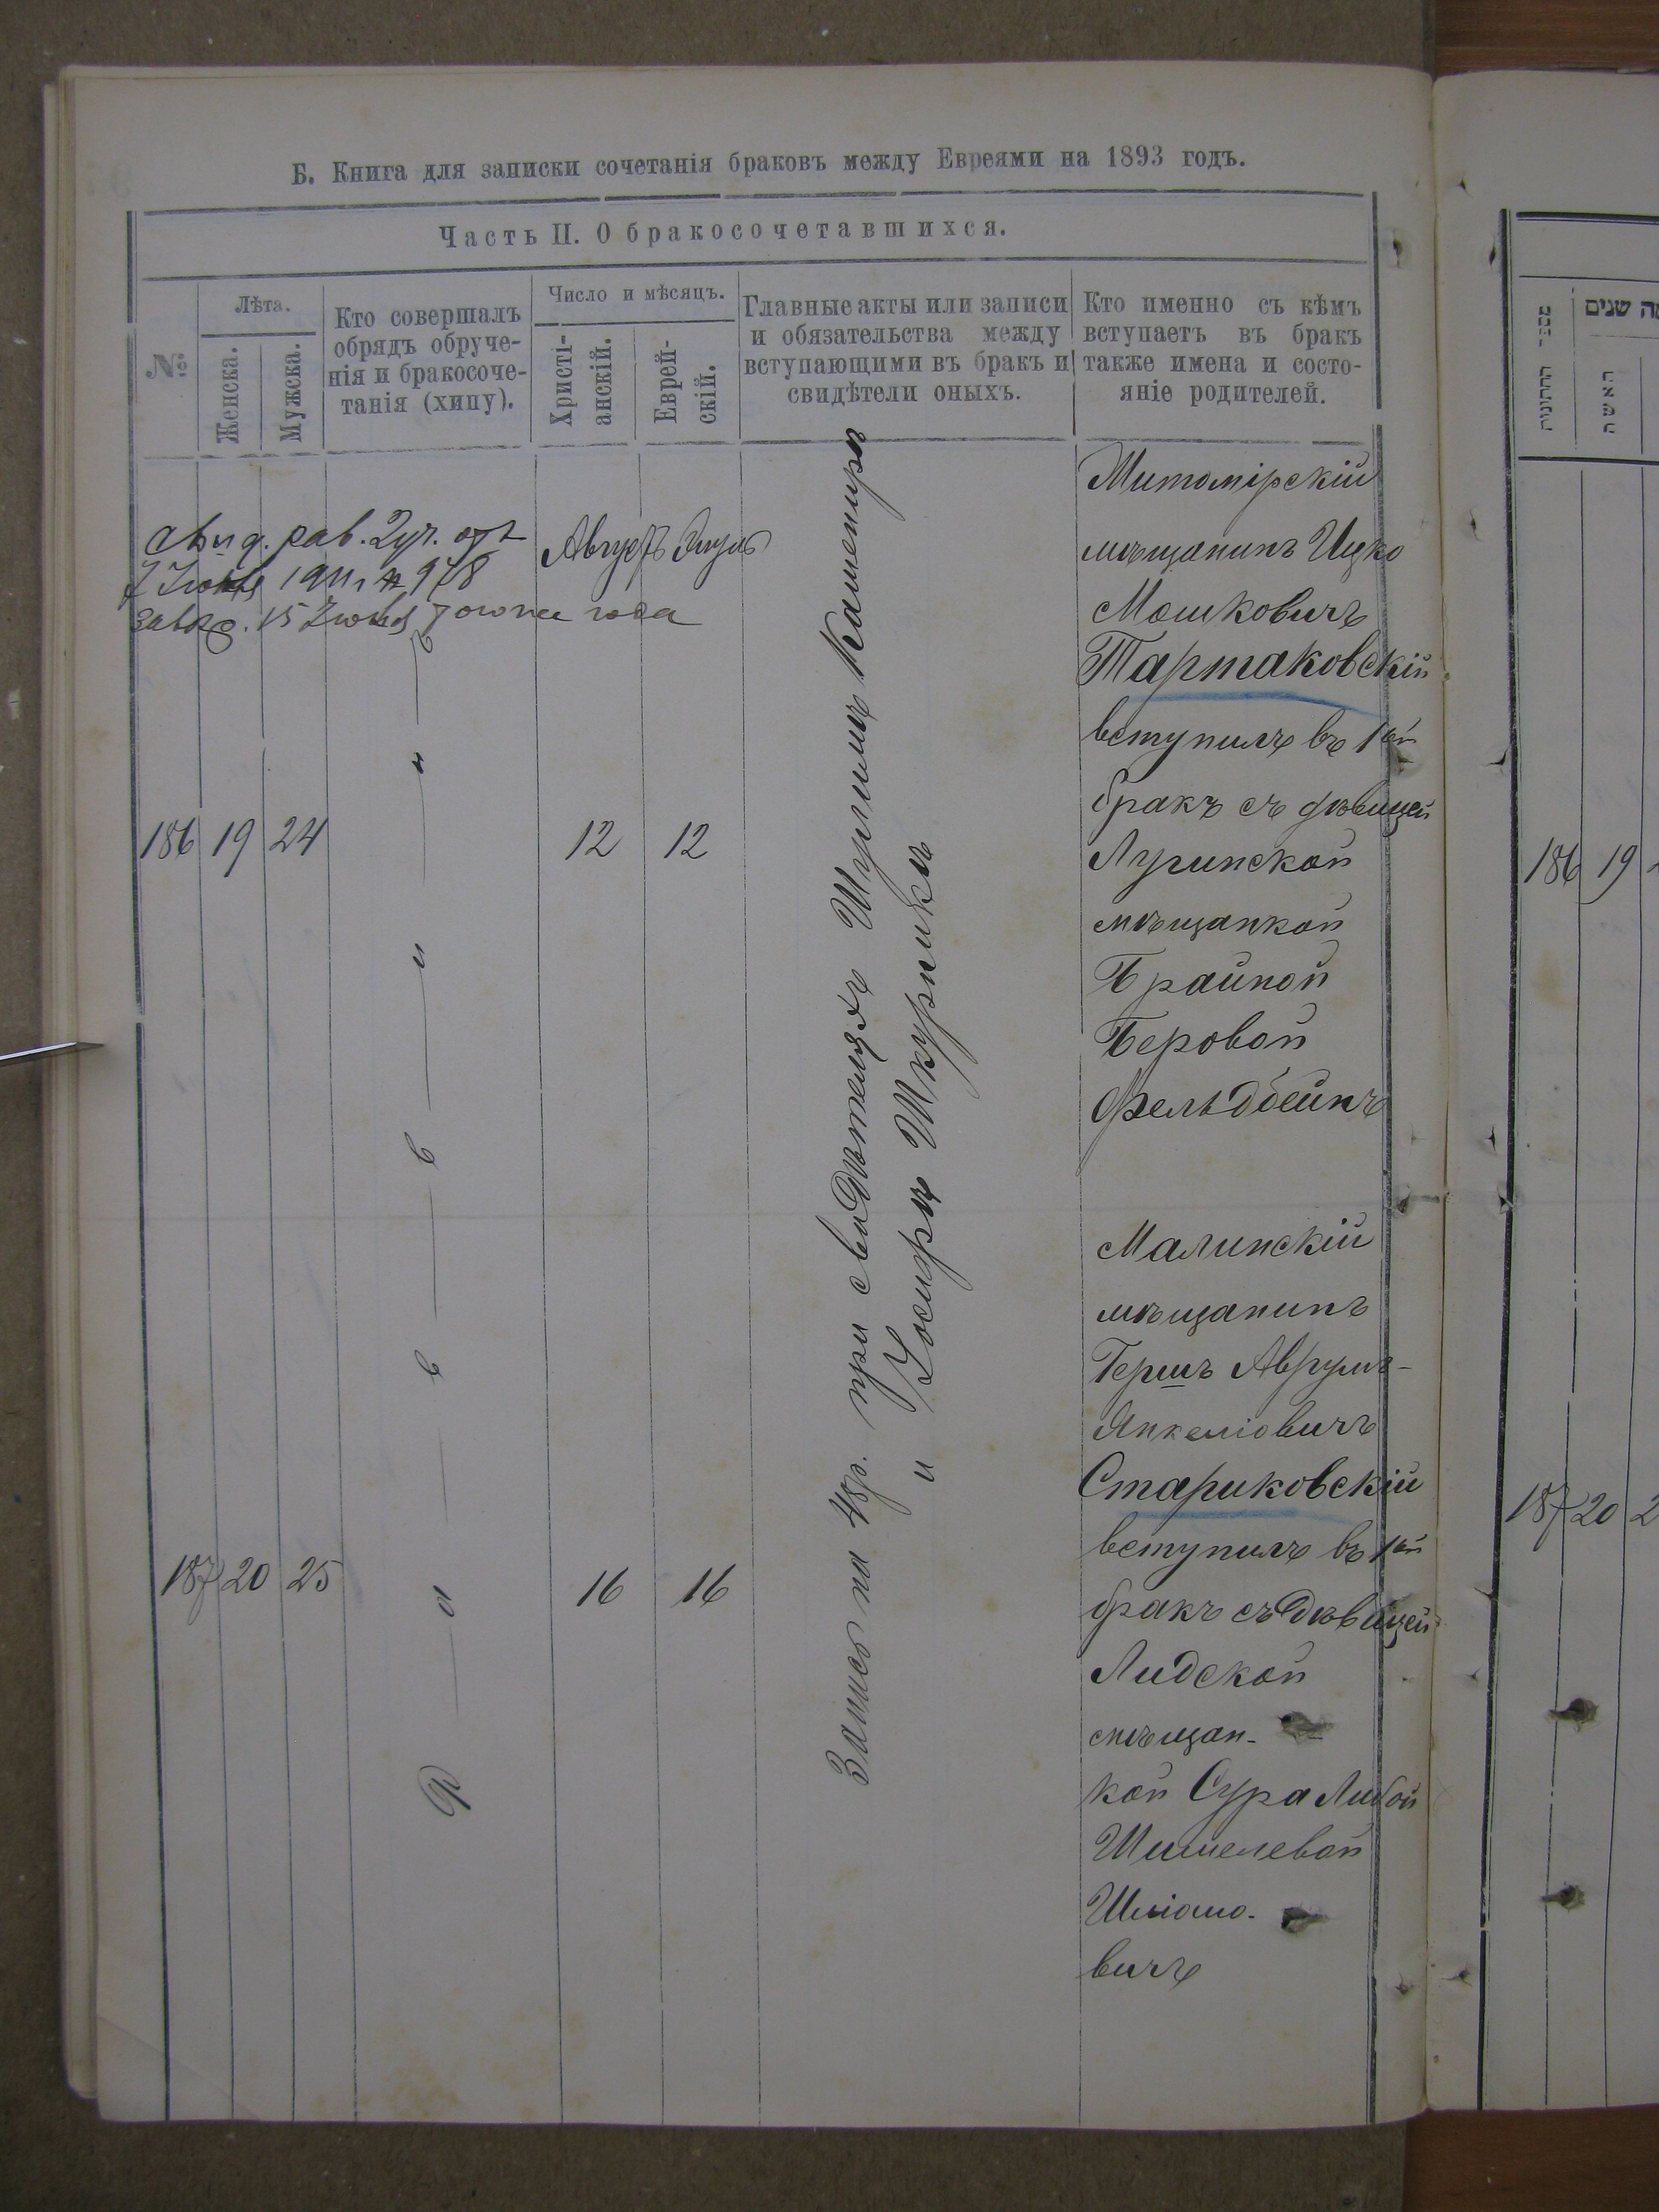 Б. Книга для записки сочетанія браковъ между Евреями на 1893 годъ.
Часть II. О бракосочетавшихся.
№
Лѣта.
Женска.
Мужска.
Кто совершалъ
обрядъ обруче-
нія и бракосоче-
танія (хипу).
Число и мѣсяцъ.
Христі-
анскій.
Еврей-
скій.
Главные акты или записи
и обязательства между
вступающими въ бракъ и
свидѣтели оныхъ.
Кто именно съ кѣмъ
вступаетъ въ бракъ
также имена и состо-
яніе родителей.
рав. 2 уч.
1911 г № 978
15 года
Августъ Элулъ
186 19 24 12 12
Запись на 48 р. при свидѣтеляхъ
и Іосифѣ Шкурникъ
Житомірскій
мѣщанинъ Ицко
Мошковичъ
Тартаковскій
вступилъ въ 1ый
бракъ съ дѣвицей
Лугинской
мѣщанкой
Брайной
Беровой
Фельдбейнъ
187 20 25 16 16
Малинскій
мѣщанинъ
Гершъ Аврумъ-
Янкеліовичъ
Стариковскій
вступилъ въ 1ый
бракъ съ дѣвицей
Лидской
мѣщан-
кой Сура Либой
Шимелевой
Шліомо-
вичъ
ספר החתונות
שנים
האשה
186 19
187 20 2